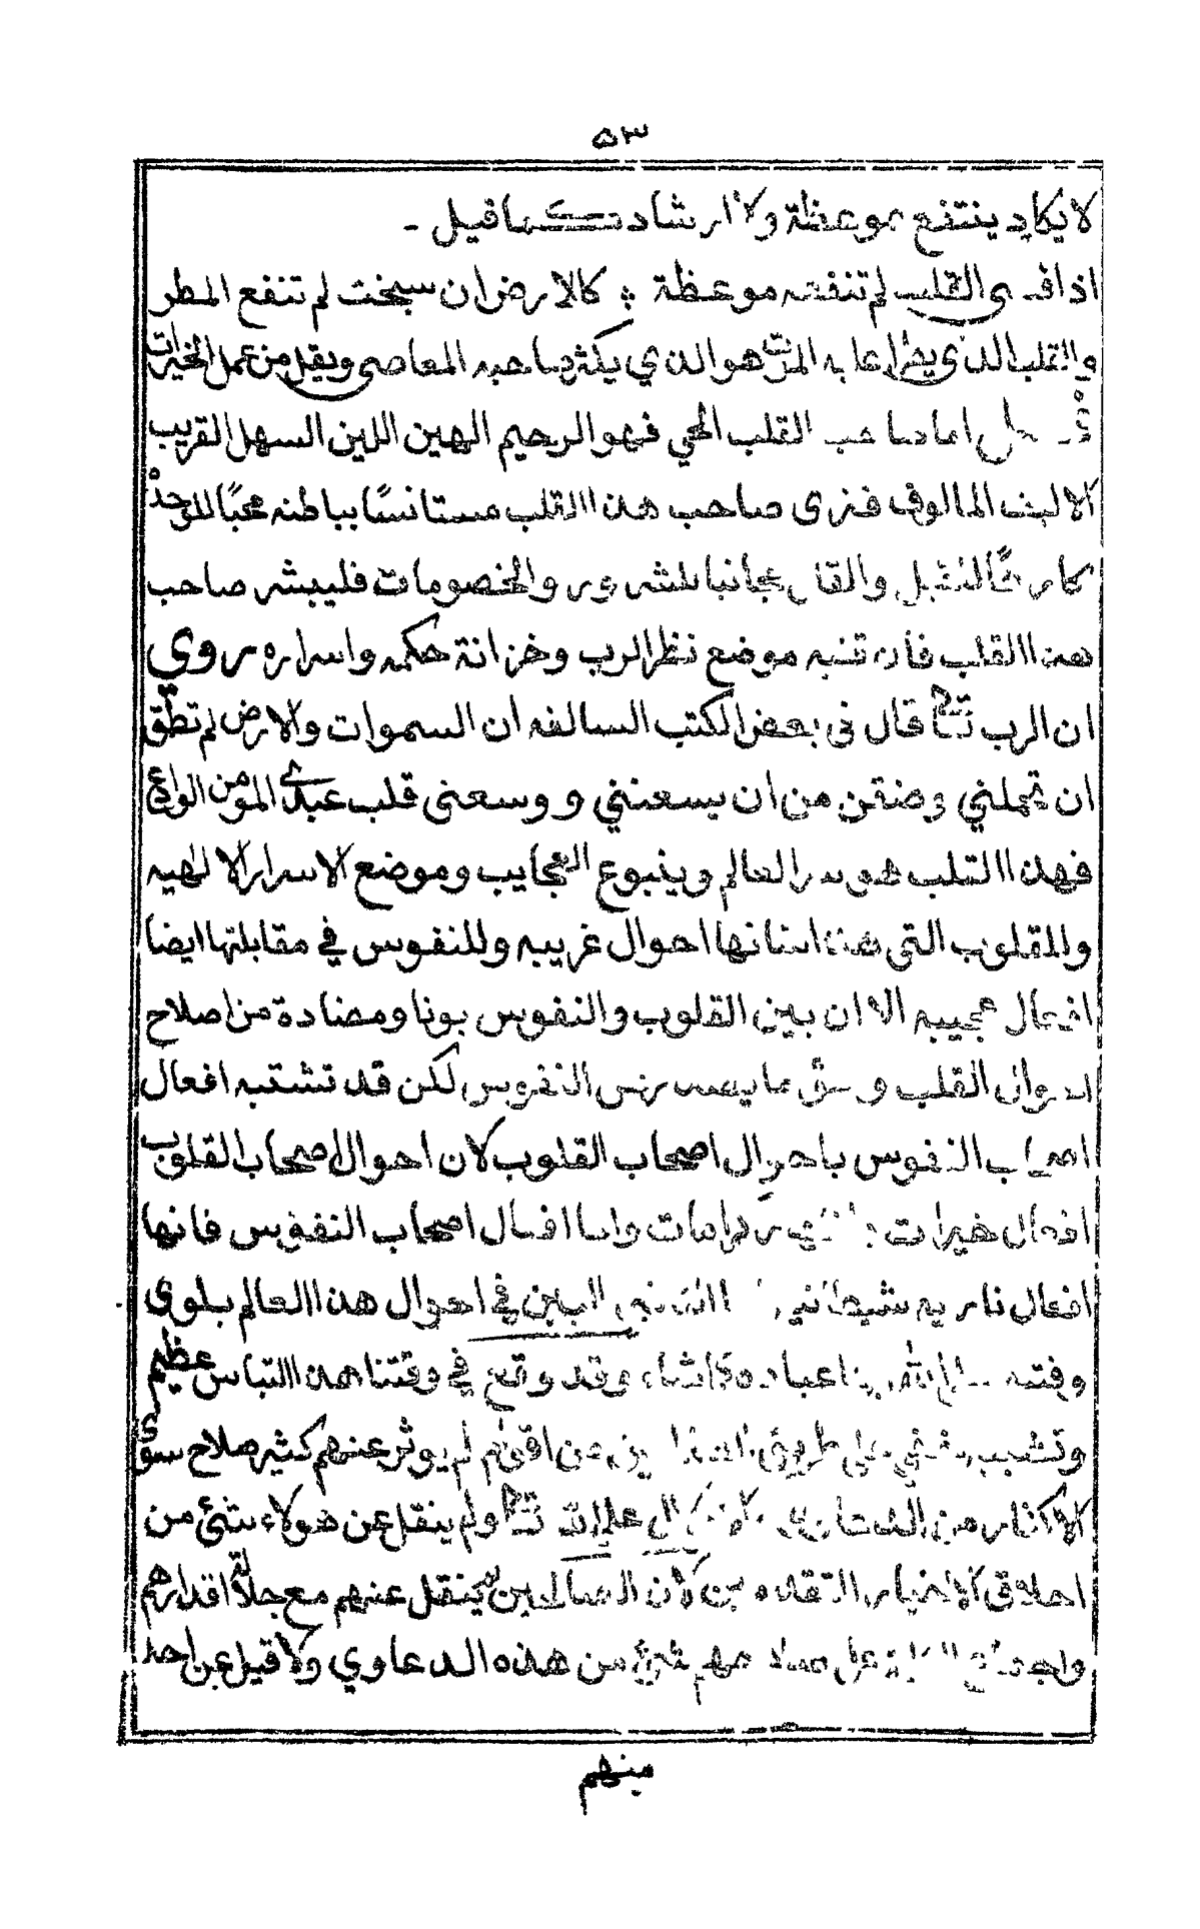 ٥٣
لا يكاد ينتفع بموعظة ولا ارشاد كما قيل ـ
اذا قسى القلب لم تنفعه موعظة ؛ كالارض ان سبخت لم تنفع المطر
والقلب الذى يطرا عليه الموت هو الذي يكثر صاحبه المعاصى ويقل من عمل الخيرات
اما صاحب القلب الحي فهو الرحيم الهين اللين السهل القريب
الاليف المالوف فترى صاحب هذا القلب مستانسًا بباطنه محبًا للوحدة
كارهًا للقيل والقال مجانبا للشرور والخصومات فليبشر صاحب
هذا القلب فان قلبه موضع نظر الرب وخزانة حكمه واسراره روي
ان الرب تعالى قال فى بعض الكتب السالفه ان السموات والارض لم تطق
ان تحملني وضقن من ان يسعنني و وسعنى قلب عبدى المومن الوادع
فهذا القلب هو سر العالم وينبوع العجايب وموضع الاسرار الالهيه
وللقلوب التى هذا شانها احوال غريبه وللنفوس في مقابلتها ايضا
افعال عجيبه الا ان بين القلوب والنفوس بونا ومضادة من اصلاح
القلب و ما يصدر من النفوس لكن قد تشتبه افعال
اصحاب النفوس باحوال اصحاب القلوب لان احوال اصحاب القلوب
افعال خيرات وكرامات واما افعال اصحاب النفوس فانها
افعال ناريه شيطانيه البين في احوال هذا العالم بلوى
وفتنه عباده وقد وقع في وقتنا هذا التباس عظيم
وتشبب على طريق من اقوام لم يوثر عنهم كثير صلاح سوى
الاكثار من تعالى ولم ينقل عن هولاء شئ من
اخلاق الاخيار المتقدمين لان الصالحين لم ينقل عنهم مع جلالة اقدارهم
شئ من هذه الدعاوي ولا قيل عن احد
منهم